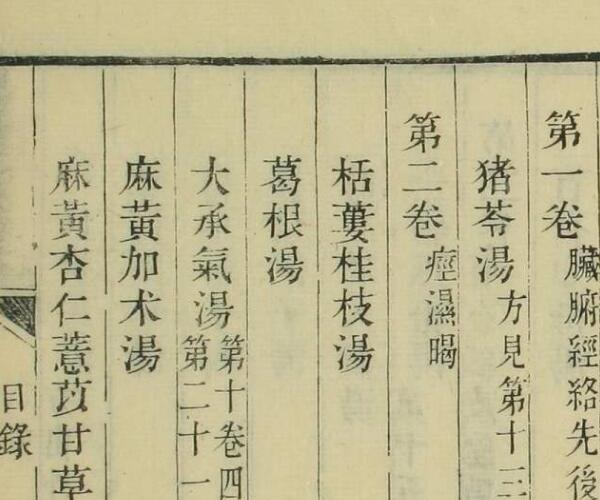 第一卷臟腑經絡先後
猪苓湯方見第十三
第二卷痙濕暍
栝蔞桂枝湯
葛根湯
大承氣湯第十卷四
第二十一
麻黃加朮湯
麻黃杏仁薏苡甘草
目錄